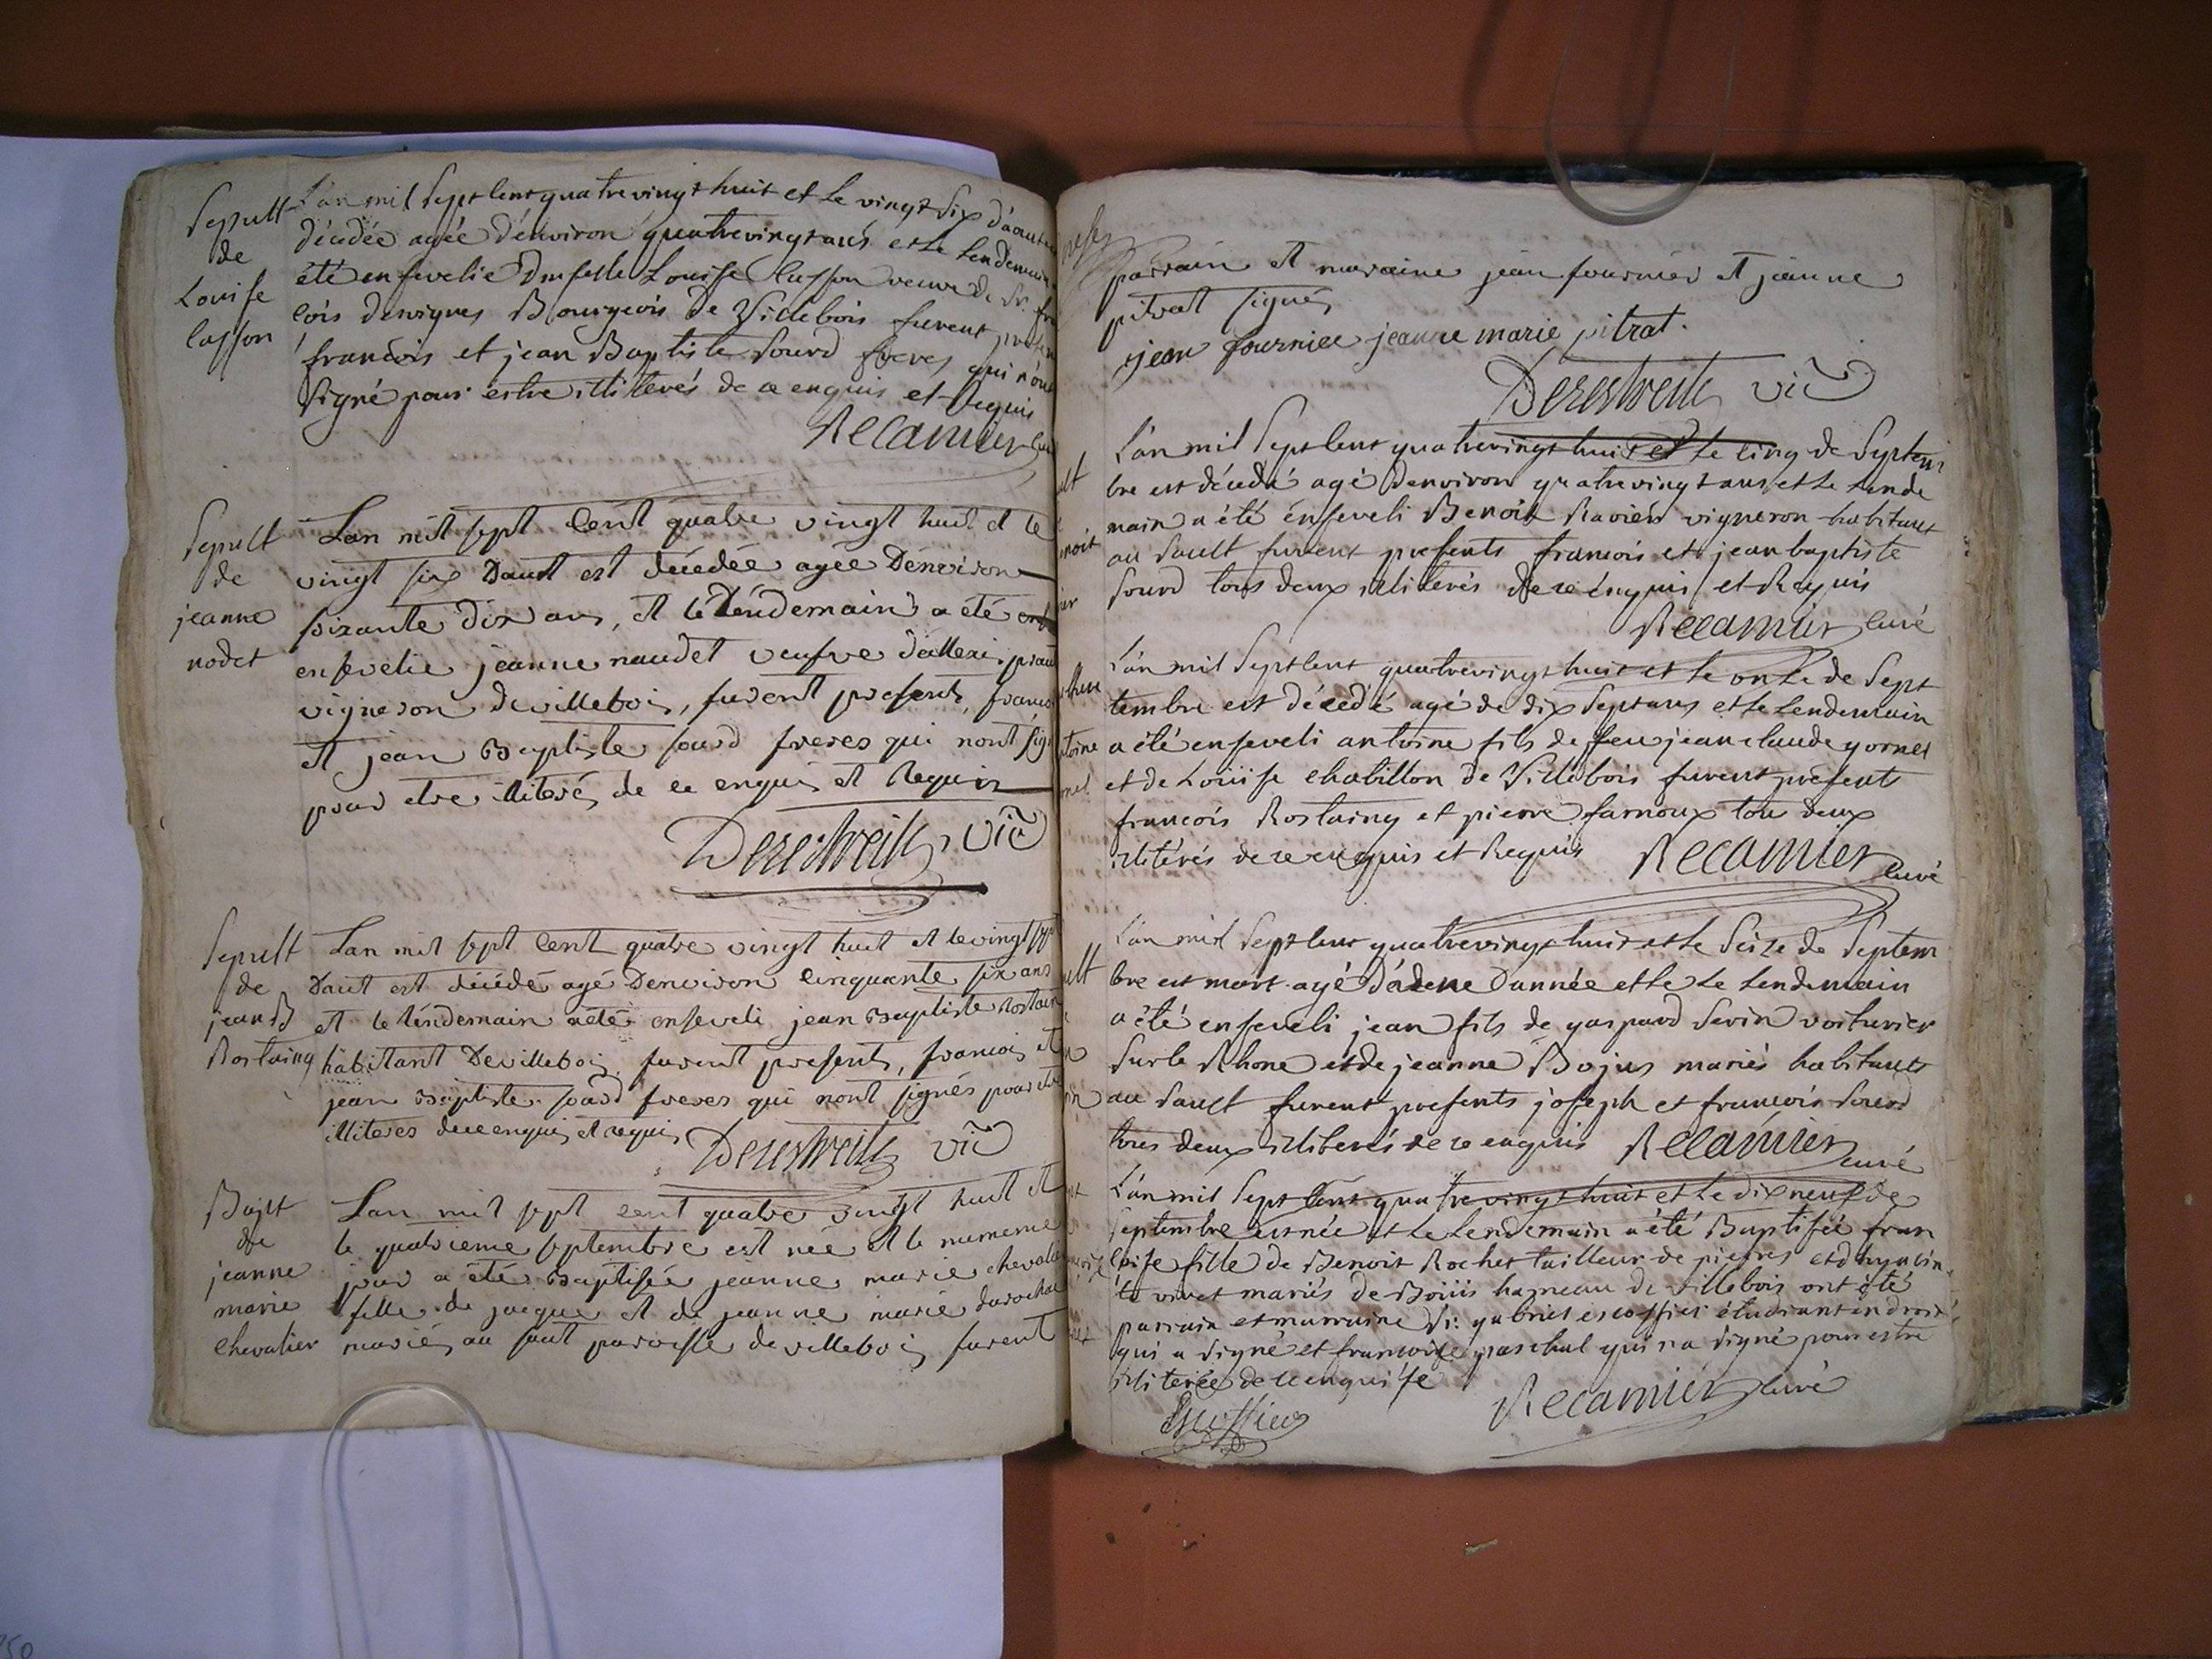 Sepult
de
Louise
lasson
L'an mil sept cent quatre vingt huit et le vingt six d'aout
décédée agée d'environ quatrevingt ans et le lendemain
été ensevelie Dmselle Louise lasson veuve de Sr. fran
cois devignes Bourgeois de Villebois furent
francois et jean Baptiste Sourd freres qui n'ont
signé pour estre illiterés de ce enquis et Requis
Recamier
Sepult
de
jeanne
nodet
Lan mil sept Cent quatre vingt huit et le
vingt six Daout est décédée agée Dénviron
soixante dix ans, et le lendemain a été
ensevelie jeanne naudet veufve
vigneron de villebois, furent presents, francois
et jean Baptiste sourd freres qui nont
pour etre illiterés de ce enquis et Requis
vic
Sepult
de
jean B
Rostaing
Lan mil sept Cent quatre vingt huit et le vingt
Daout est décédé agé Denviron Cinquante six ans
et le lendemain a été enseveli jean Baptiste Rostain
habitant De villebois, furent presents, francois et
jean Baptiste sourd freres qui nont signés pour etre
illiteres de ce enquis et requis
vic
Bapt
de
jeanne
marie
chevalier
Lan mil sept cent quatre vingt huit et
le quatrieme septembre est née et le meme
jour a été Baptisée jeanne marie chevalier
fille de jacque et de jeanne marie
mariés au saut paroisse de villebois furent
parrain et maraine jean fournier et jeanne
pitrat signés
jean fournier jeanne marie pitrat.
vic
L'an mil Sept Cent quatrevingt huit et le cinq de Septem
bre est décédé agé denviron quatrevingt ans et le lende
main a été enseveli Benoit Ravier vigneron habitant
au Sault furent presents francois et jean baptiste
Sourd tous deux illiterés de ce enquis et Requis
Recamier Curé
L'an mil Sept Cent quatrevingt huit et le onze de Sept
tembre est décédé agé de dix Sept ans et le lendemain
a été enseveli antoine fils de feu jean claude gornet
et de Louise chabillon de Villebois furent présents
francois Rostaing et pierre farnoux tou deux
illitérés de ce enquis et Requis Recamier Curé
L'an mil Sept Cent quatrevingt huit et le Seize de Septem
bre est mort agé d'une année et le lendemain
a été enseveli jean fils de gaspard Savin voiturier
Sur le Rhone et de jeanne Bojus mariés habitants
au Sault furent presents joseph et francois Sourd
tous deux illiterés de ce enquis Recamier curé
L'an mil Sept Cent quatrevingt huit et le dix neuf de
Septembre est née et le lendemain a été Baptisée fran
coise fille de Benoit Rochet tailleur de pierres et d'hyacin
te vivet mariés de Boüis hameau de Villebois ont été
parrain et marraine Sr. gabriel escoffier étudiant en droit
qui a Signé et francoise paschal qui n'a Signé pour estre
illiterée de ce enquise
Escoffier Recamier Curé